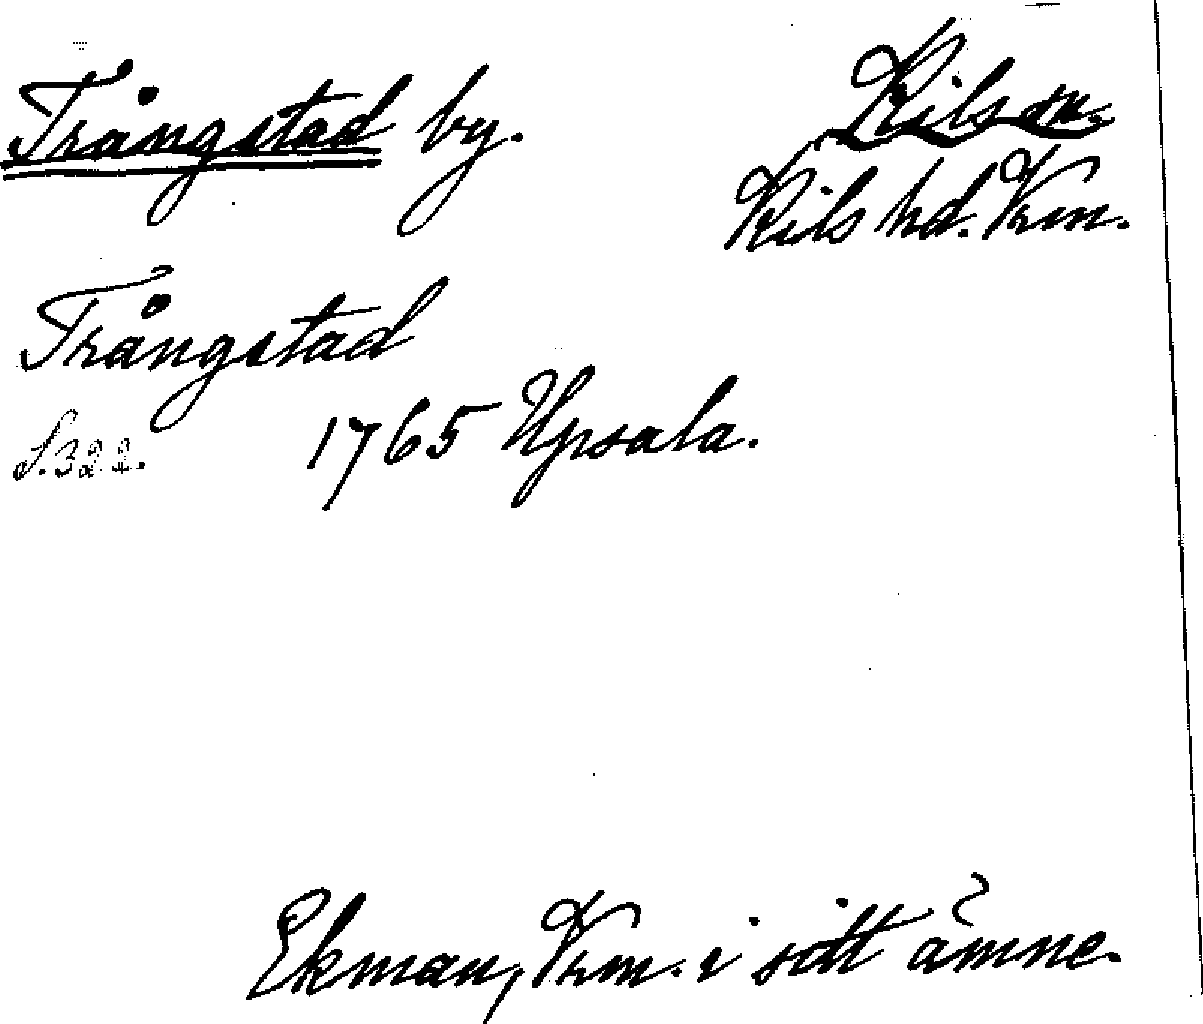 Trångstad by.
Kils sn.
Kils hd. Vrm.
Trångstad
S. 322. 1765 Upsala.
Ekman, Vrm. i sitt ämne.